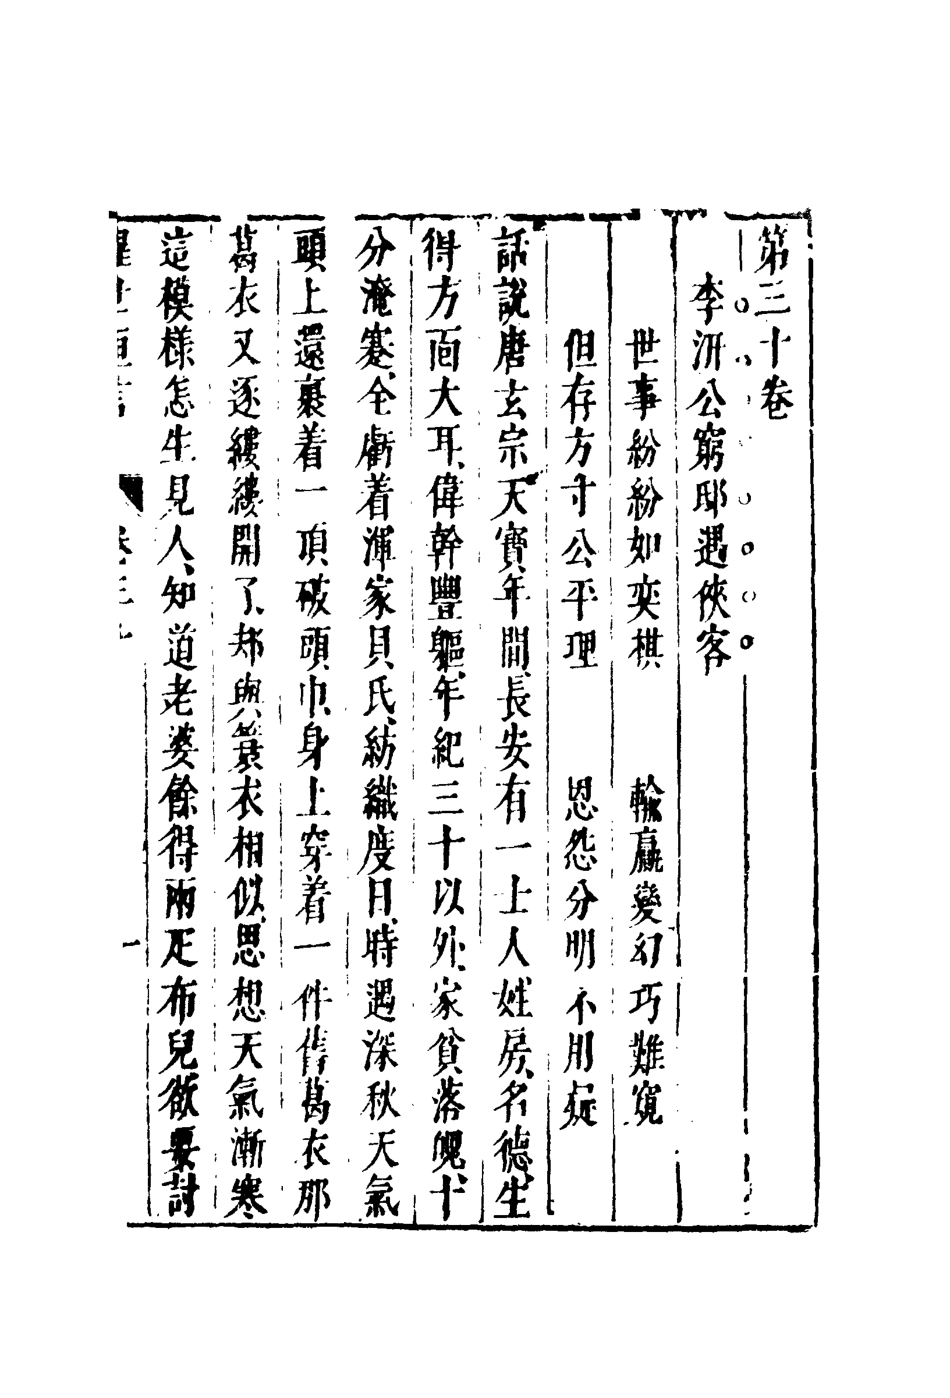 第三十卷
李汧公窮邸遇俠客
世事紛紛如奕棋　輸贏變幻巧難窺
但存方寸公平理　恩怨分明不用疑
話說唐玄宗天寶年間、長安有一士人姓房、名德、生
得方面大耳、偉幹豐軀、年紀三十以外、家貧落魄、十
分淹蹇、全虧着渾家貝氏、紡織度日、時遇深秋天氣
頭上還裹着一頂破頭巾、身上穿着一件舊葛衣那
葛衣又逐縷縷開了、却與簑衣相似、思想天氣漸寒
這模樣怎生見人、知道老婆餘得兩疋布兒欲要討
醒世恒言　卷三十　一